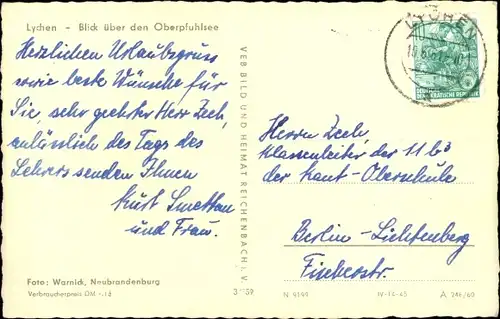 Lychen - Blick über den Oberpfuhlsee
Herzlichen Urlaubsgruss
sowie beste Wünsche für
Sie, sehr geehrter Herr Zech,
anlässlich des Tags des
Lehrers senden Ihnen
Kurt
und Frau.
Foto: Warnick, Neubrandenburg
Verbraucherpreis DM
VEB BILD UND HEIMAT REICHENBACH i. V.
LYCHEN
DEUTSCHE
DEMOKRATISCHE REPUBLIK
Herrn Zech,
Klassenleiter der 11 b³
der Kant-Oberschule
Berlin-Lichtenberg
Fischerstr.
N 9199
IV-14-45
A 246/60